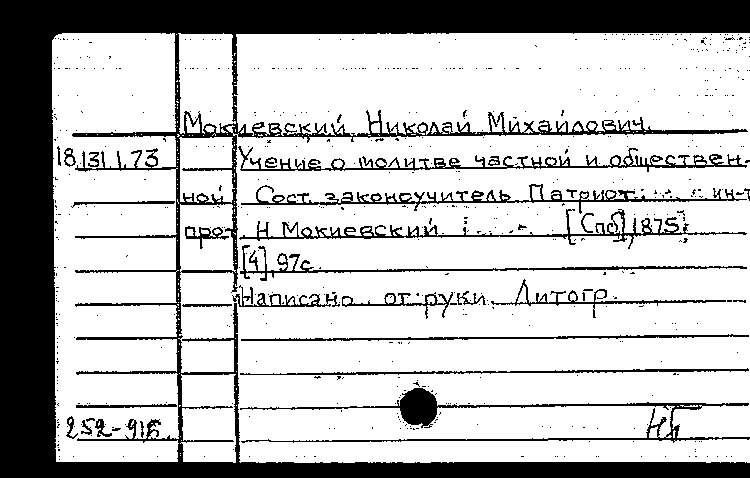 Мокиевский, Николай Михайлович.
18.131.1.73 Учение о молитве частной и обществен-
ной Сост. законоучитель Патриот. ин-т
прот Н Мокиевский [Спб], 1875.
[4], 97с.
Написано от руки. Литогр.
252-916. НБ